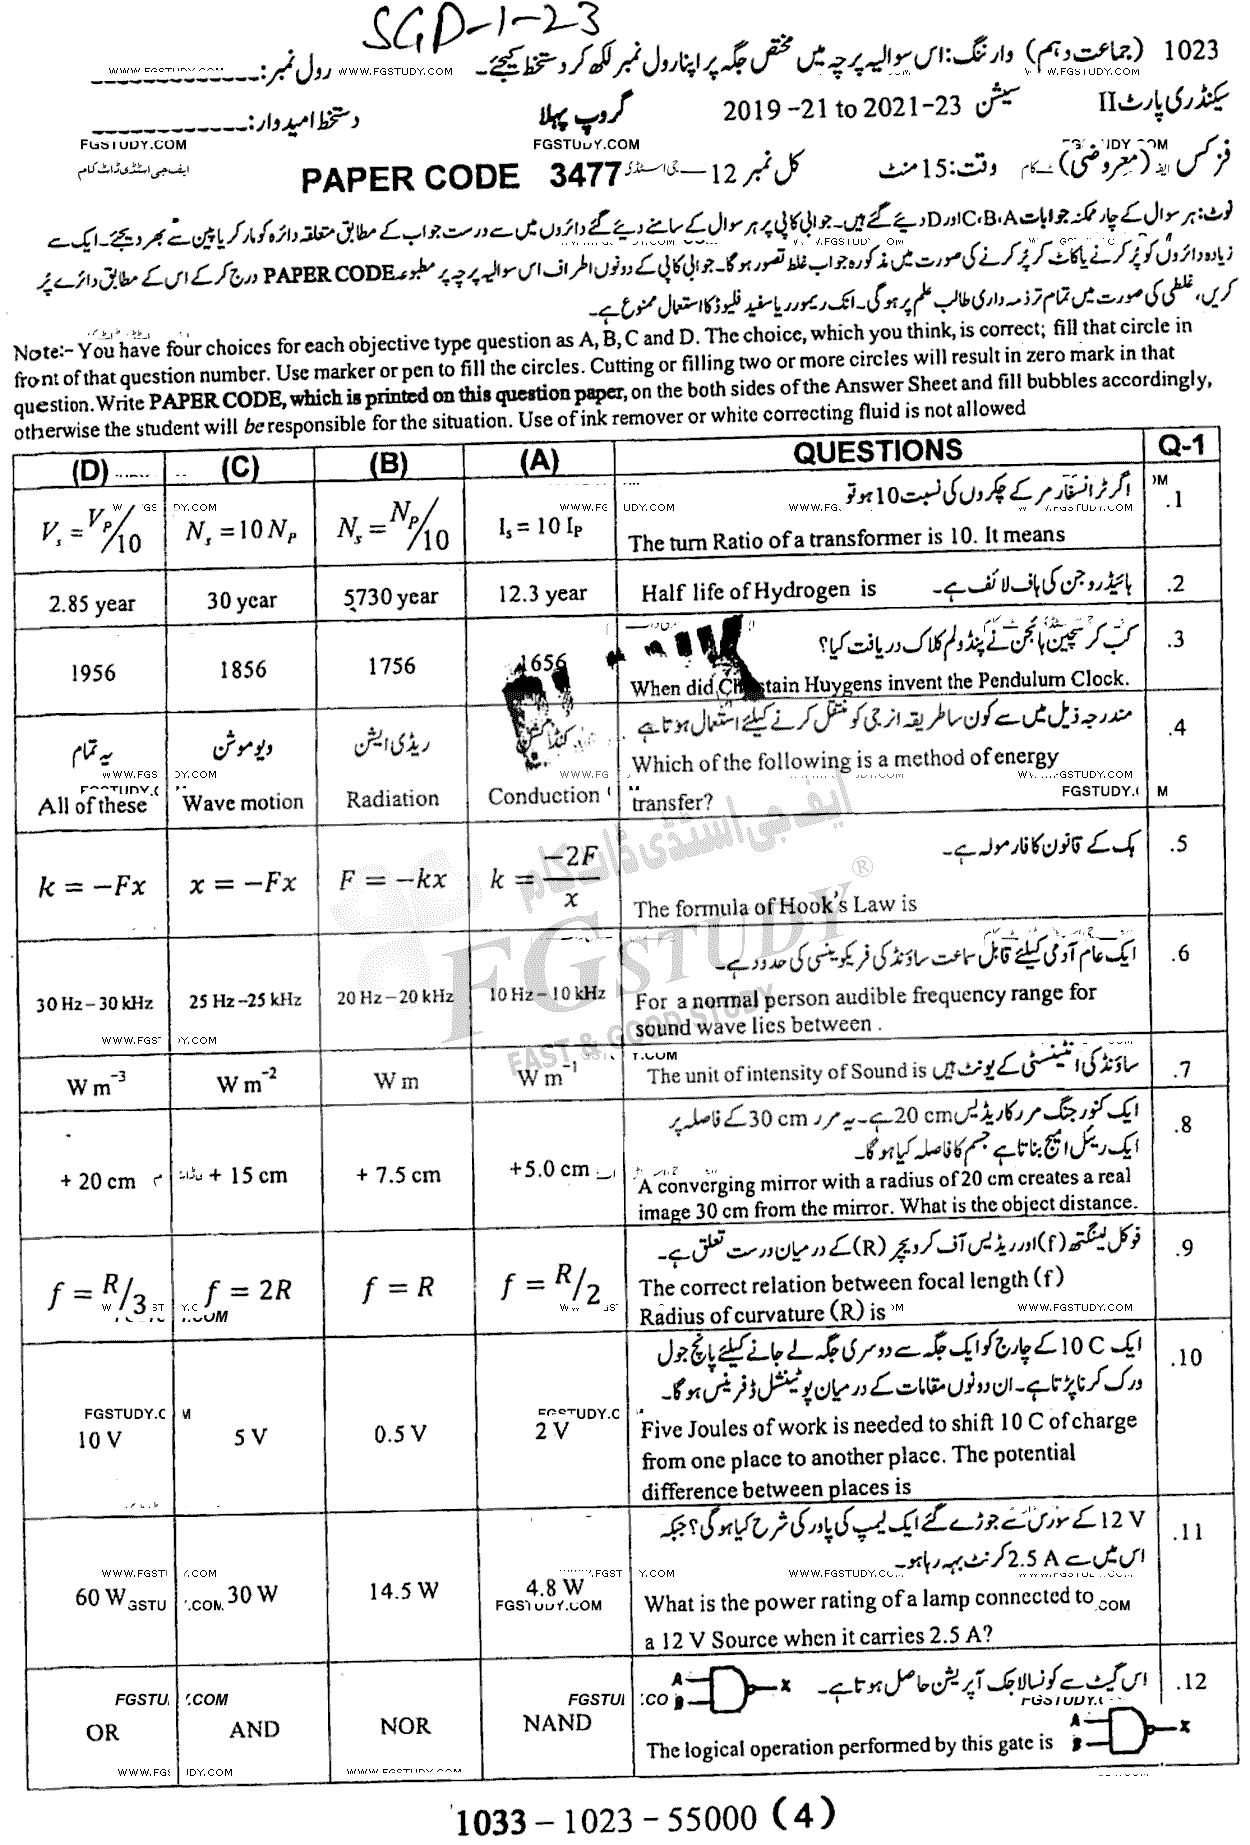 SGD-1-23
1023 (جماعت دہم) وارننگ: اس سوالیہ پرچہ میں مختص جگہ پر اپنا رول نمبر لکھ کر دستخط کیجئے۔ WWW.FGSTUDY.COM رول نمبر:
سیکنڈری پارٹ II سیشن 2019 -21 to 2021-23 گروپ پہلا دستخط امیدوار:
FGSTUDY.COM FGSTUDY.COM
فزکس (معروضی) وقت: 15 منٹ کل نمبر 12 PAPER CODE 3477 ایف جی اسٹڈی ڈاٹ کام
نوٹ: ہر سوال کے چار ممکنہ جوابات C،B،A اور D دیئے گئے ہیں۔ جوابی کاپی پر ہر سوال کے سامنے دیئے گئے دائروں میں سے درست جواب کے مطابق متعلقہ دائرہ کو مارکر یا پین سے بھر دیجئے۔ ایک سے
زیادہ دائروں کو پُر کرنے یا کاٹ کر پُر کرنے کی صورت میں مذکورہ جواب غلط تصور ہوگا۔ جوابی کاپی کے دونوں اطراف اس سوالیہ پرچہ پر مطبوعہ PAPER CODE درج کر کے اس کے مطابق دائرے پُر
کریں، غلطی کی صورت میں تمام تر ذمہ داری طالب علم پر ہوگی۔ انک ریموور یا سفید فلیوڈ کا استعمال ممنوع ہے۔
Note:- You have four choices for each objective type question as A, B, C and D. The choice, which you think, is correct; fill that circle in
front of that question number. Use marker or pen to fill the circles. Cutting or filling two or more circles will result in zero mark in that
question. Write PAPER CODE, which is printed on this question paper, on the both sides of the Answer Sheet and fill bubbles accordingly,
otherwise the student will be responsible for the situation. Use of ink remover or white correcting fluid is not allowed
(D) (C) (B) (A) QUESTIONS Q-1
اگر ٹرانسفارمر کے چکروں کی نسبت 10 ہو تو .1
V_s = V_P/10 N_s = 10 N_P N_s = N_P/10 I_s = 10 I_P The turn Ratio of a transformer is 10. It means
2.85 year 30 year 5730 year 12.3 year Half life of Hydrogen is ہائیڈروجن کی ہاف لائف ہے۔ .2
کب کرسچین ہائجن نے پنڈولم کلاک دریافت کیا؟ .3
1956 1856 1756 1656 When did Christain Huygens invent the Pendulum Clock.
مندرجہ ذیل میں سے کون سا طریقہ انرجی کو منتقل کرنے کیلئے استعمال ہوتا ہے .4
یہ تمام ویو موشن ریڈی ایشن کنڈکشن
Which of the following is a method of energy
All of these Wave motion Radiation Conduction transfer?
ہک کے قانون کا فارمولہ ہے۔ .5
k = −Fx x = −Fx F = −kx k = −2F/x The formula of Hook's Law is
ایف جی اسٹڈی ڈاٹ کام
FGSTUDY®
FAST & GOOD STUDY
ایک عام آدمی کیلئے قابل سماعت ساؤنڈ کی فریکوینسی کی حدود ہے۔ .6
30 Hz – 30 kHz 25 Hz –25 kHz 20 Hz – 20 kHz 10 Hz – 10 kHz For a normal person audible frequency range for
sound wave lies between .
W m⁻³ W m⁻² W m W m⁻¹ The unit of intensity of Sound is ساؤنڈ کی انٹینسٹی کے یونٹ ہیں .7
ایک کنورجنگ مرر کا ریڈیس 20 cm ہے۔ یہ مرر 30 cm کے فاصلہ پر .8
ایک ریئل امیج بناتا ہے جسم کا فاصلہ کیا ہوگا۔
+ 20 cm + 15 cm + 7.5 cm +5.0 cm A converging mirror with a radius of 20 cm creates a real
image 30 cm from the mirror. What is the object distance.
فوکل لینگتھ (f) اور ریڈیس آف کرویچر (R) کے درمیان درست تعلق ہے۔ .9
f = R/3 f = 2R f = R f = R/2 The correct relation between focal length (f)
Radius of curvature (R) is WWW.FGSTUDY.COM
ایک 10 C کے چارج کو ایک جگہ سے دوسری جگہ لے جانے کیلئے پانچ جول .10
ورک کرنا پڑتا ہے۔ ان دونوں مقامات کے درمیان پوٹینشل ڈفرینس ہوگا۔
10 V 5 V 0.5 V 2 V Five Joules of work is needed to shift 10 C of charge
from one place to another place. The potential
difference between places is
12 V کے سورس سے جوڑے گئے ایک لیمپ کی پاور کی شرح کیا ہوگی؟ جبکہ .11
اس میں سے 2.5 A کرنٹ بہہ رہا ہو۔
60 W 30 W 14.5 W 4.8 W What is the power rating of a lamp connected to
FGSTUDY.COM
a 12 V Source when it carries 2.5 A?
اس گیٹ سے کونسا لاجک آپریشن حاصل ہوتا ہے۔ A B X .12
OR AND NOR NAND The logical operation performed by this gate is A B X
1033 – 1023 – 55000 (4)